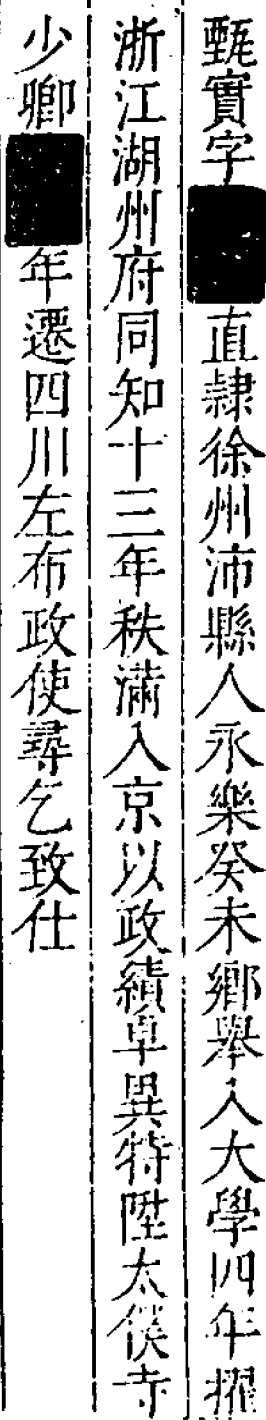 甄實字直隸徐州沛縣人永樂癸未鄉舉入大學四年擢
浙江湖州府同知十三年秩滿入京以政績卓異特陞太僕寺
少卿年遷四川左布政使尋乞致仕